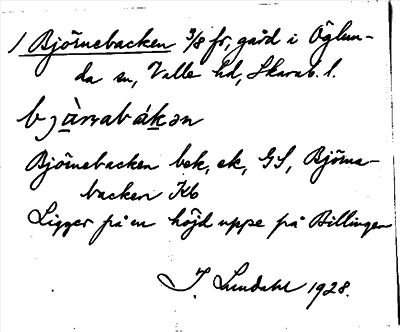 1 Björnebacken 3/8 fr, gård i Öglun-
da sn, Valle hd, Skarab. l.
bjàrnabákən
Björnebacken bek, ek, GS, Björna-
backen Kb
Ligger på en höjd uppe på Billingen
J. Lundahl 1928.